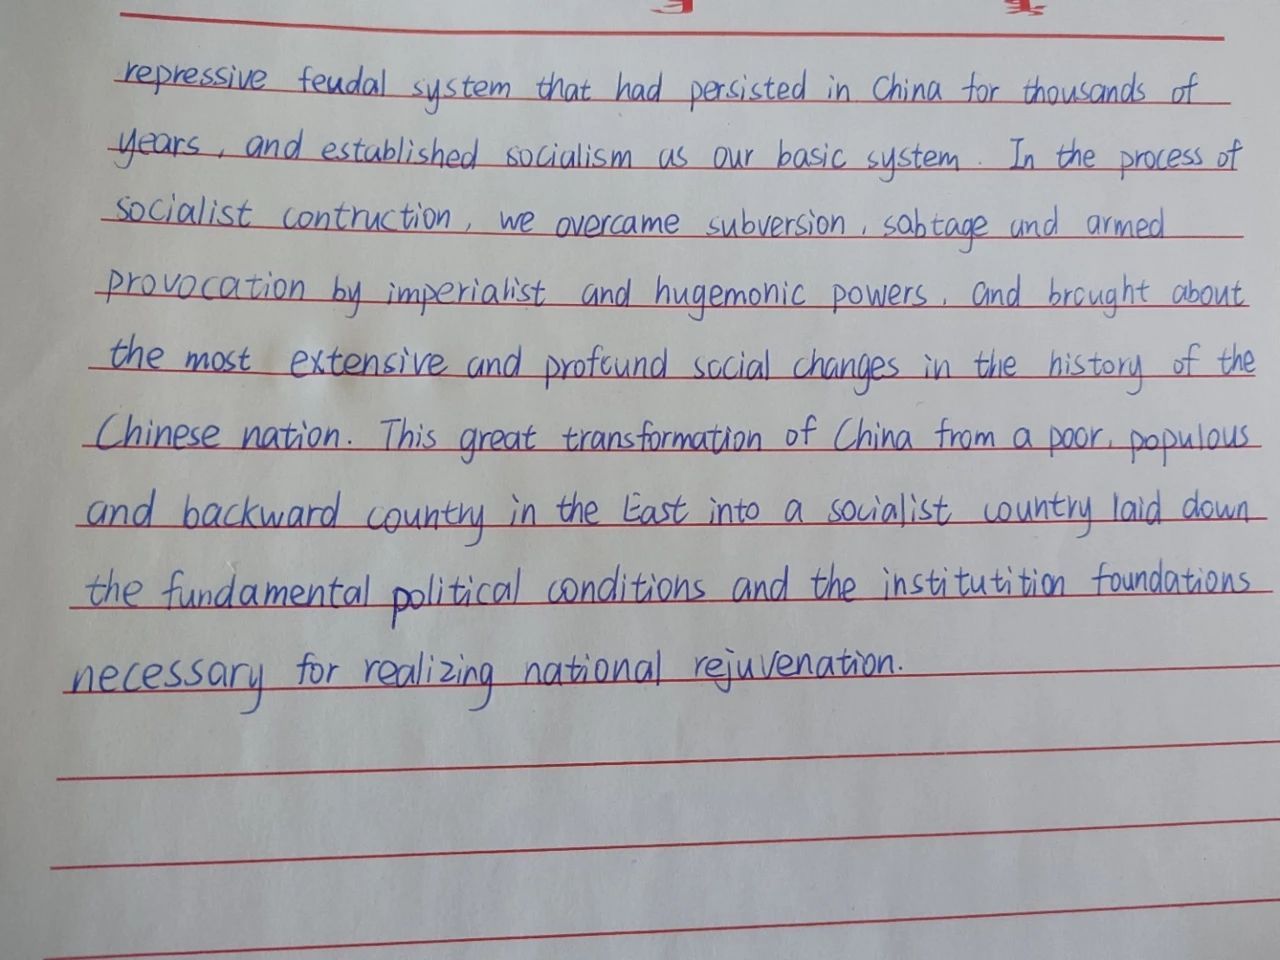 repressive feudal system that had persisted in China for thousands of
years, and established socialism as our basic system. In the process of
socialist contruction, we overcame subversion, sabtage and armed
provocation by imperialist and hugemonic powers, and brought about
the most extensive and profound social changes in the history of the
Chinese nation. This great transformation of China from a poor, populous
and backward country in the East into a socialist country laid down
the fundamental political conditions and the institutition foundations
necessary for realizing national rejuvenation.